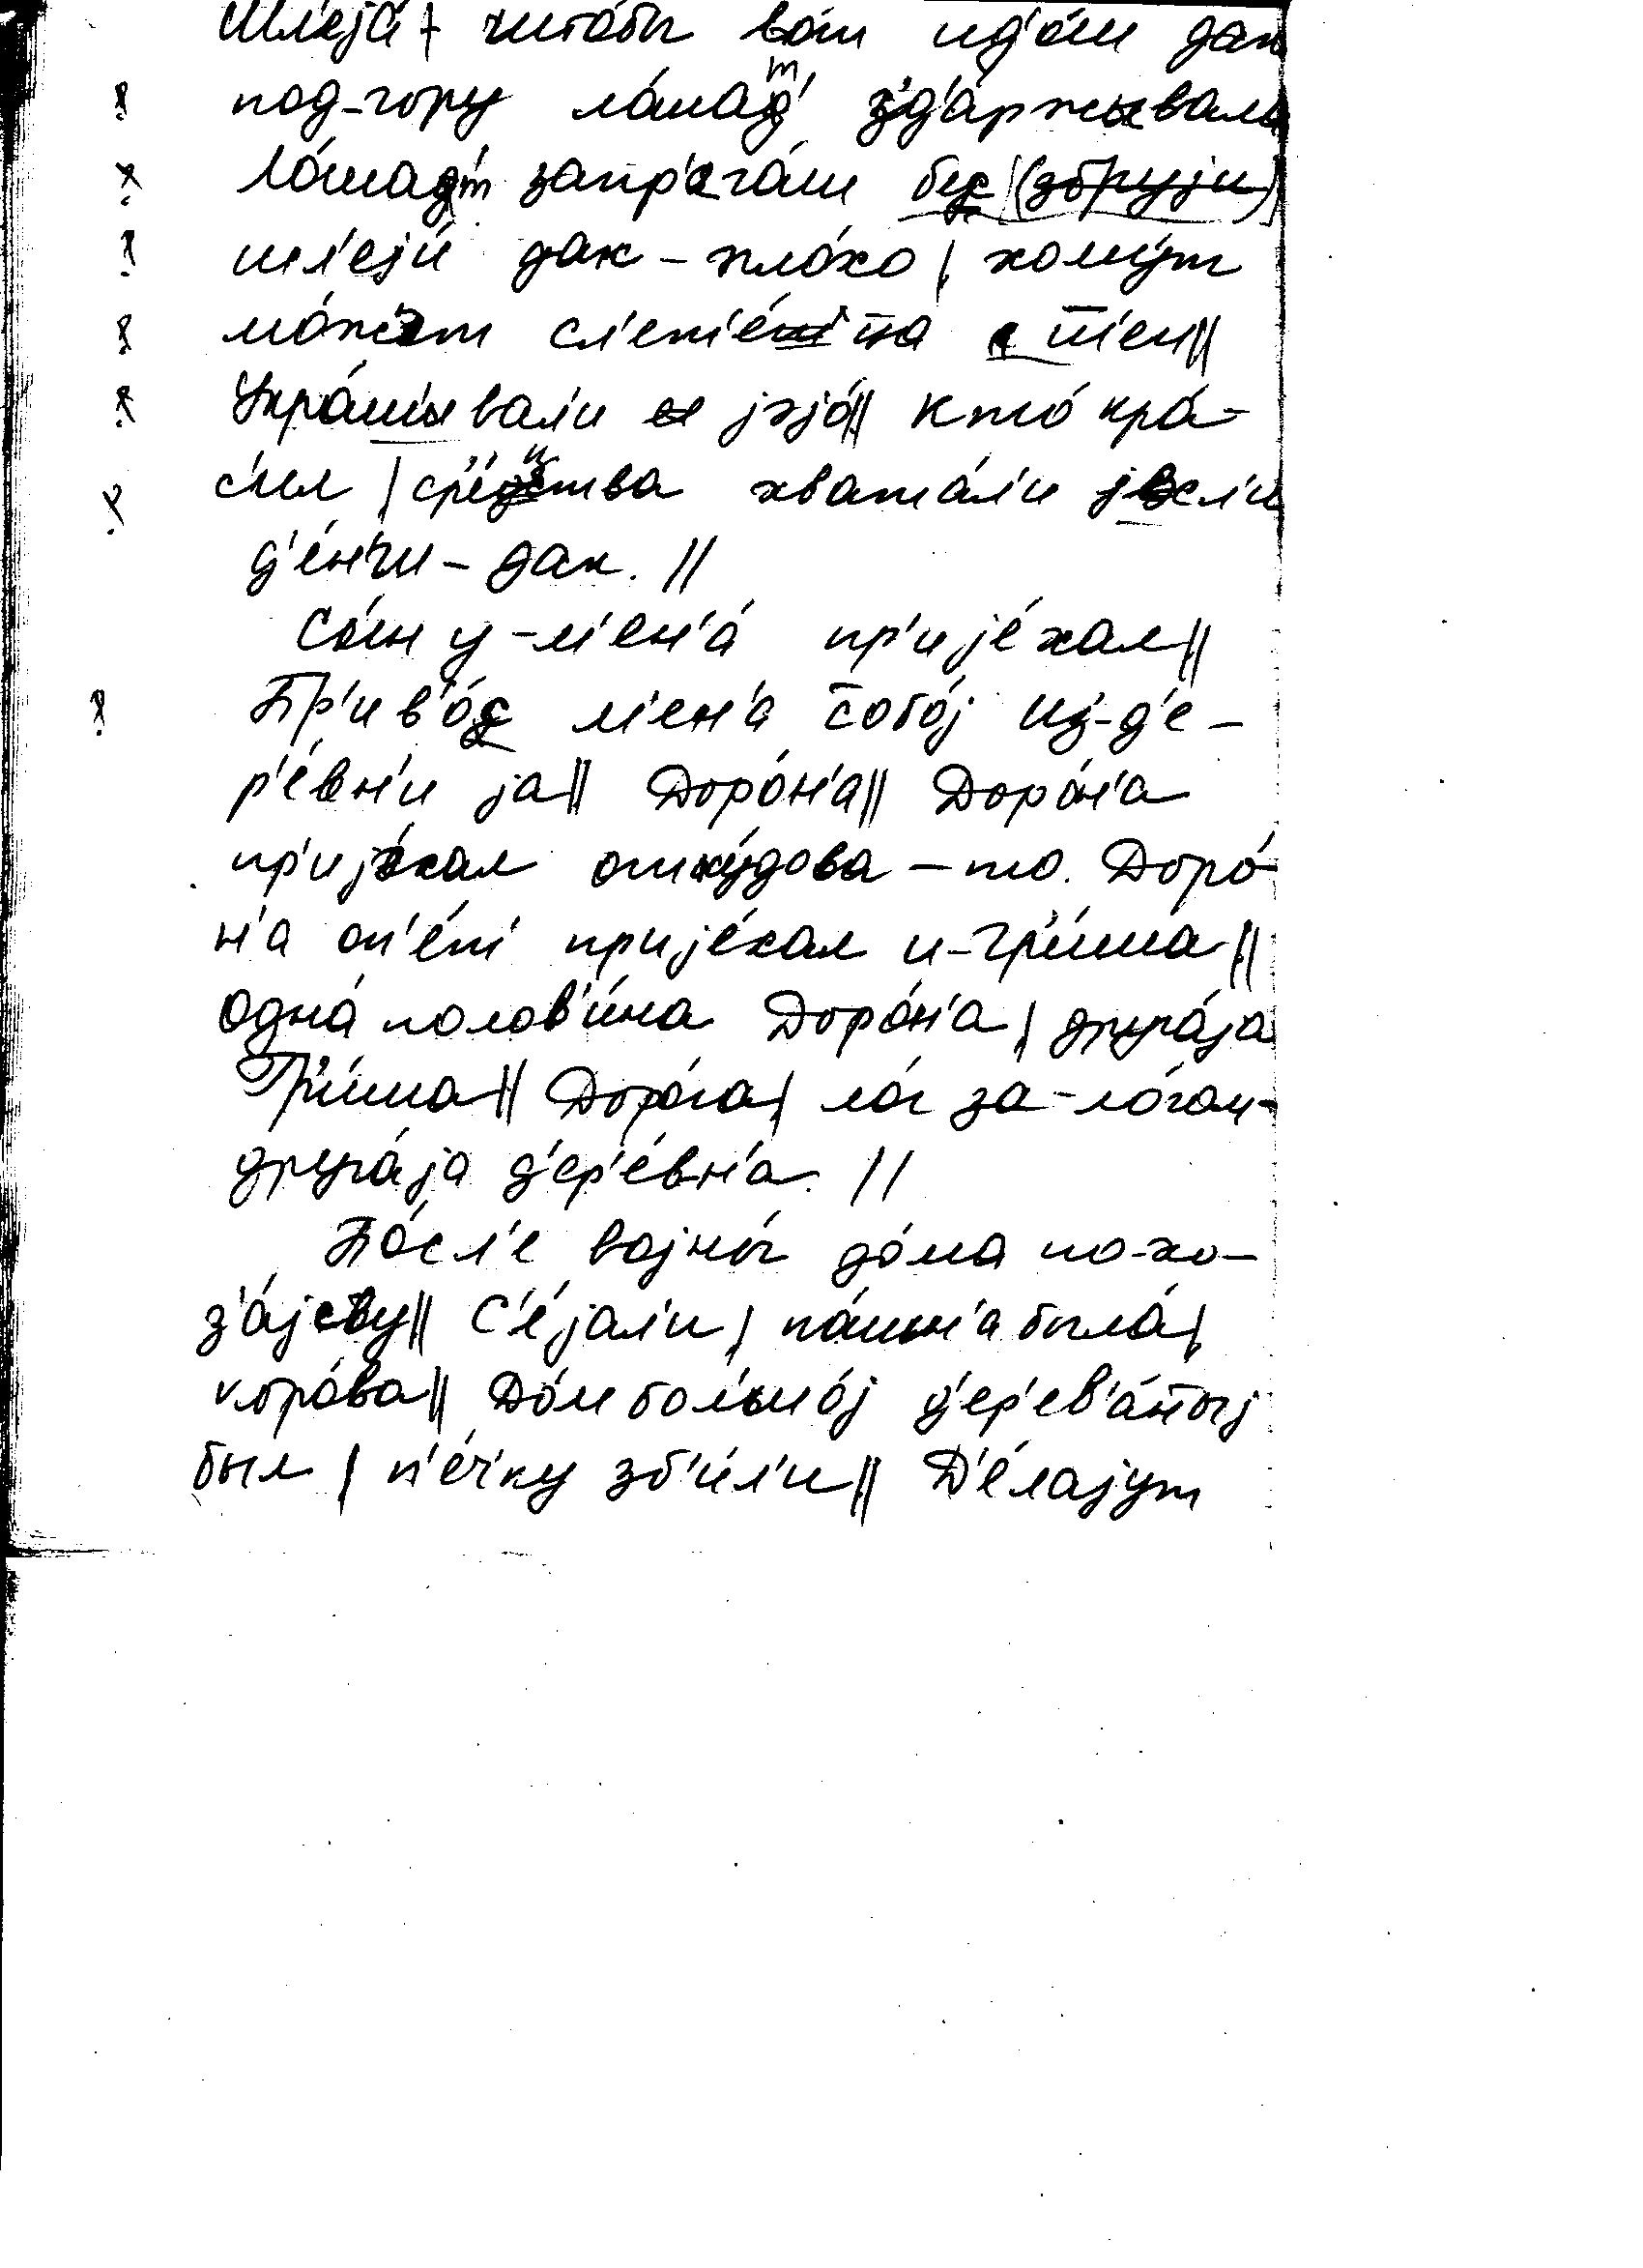 шл'еjа́ | штобы во́т ид'о́ш дак
под-гору ло́шат' з'д'а́ржывала
Ло́шат' запр'ега́ш бес
шл'еjи́ дак – пло́хо | хому́т
мо́жэт сл'ет'е́т' на т'ен ||
Укра́шывал'и jэjо́ || кто́ кра́-
с'ил | ср'е́цтва хвата́л'и jесл'и
д'е́н'г'и – дак. ||
Сы́н у-м'ен'а́ пр'иjе́хал ||
Пр'ив'о́с м'ен'а собо́j из-д'е-
р'е́вн'и jа || Доро́н'а || Доро́н'а
пр'иjе́хал отку́дова – то. Доро́-
н'а оп'е́т' приjе́хал и-Гр'и́ша ||
Одна́ полов'и́на Доро́н'а | друга́jа
Гр'и́ша || Доро́га | ло́г за-ло́гом-
друга́jа д'ер'е́вн'а. ||
По́сл'е воjны́ до́ма по-хо-
з'а́jству || С'е́jал'и | па́шн'а была́ |
коро́ва || До́м бол'шо́j д'ер'ев'а́ныj
был | п'е́ч'ку зб'и́л'и || Д'е́лаjут